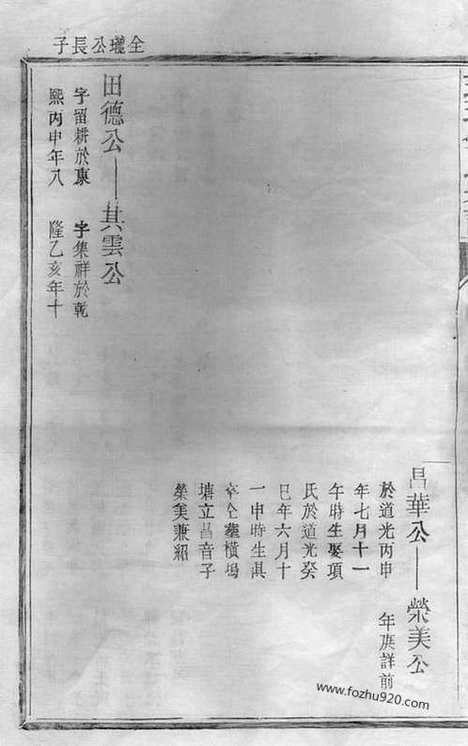 昌華公——榮美公
於道光丙申
年七月十一
午時生娶項
氏於道光癸
巳年六月十
一申時生俱
卒仝塟橫塢
塘立昌音子
榮美兼紹
年庚詳前
全瓏公長子
田德公——其雲公
字留耕於康
熙丙申年八
字集祥於乾
隆乙亥年十
www.fozhu920.com